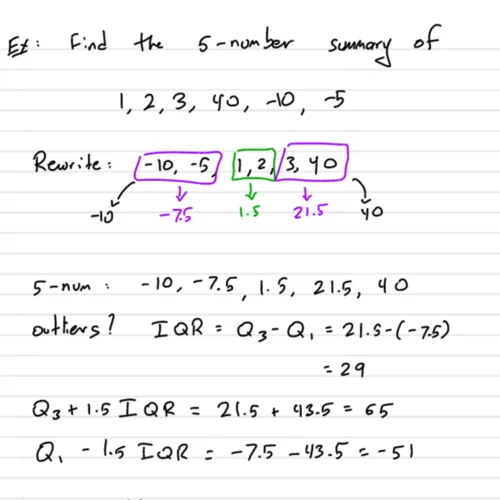 Ex: Find the 5-number summary of
1, 2, 3, 40, -10, -5
Rewrite: -10, -5, 1, 2, 3, 40
-10 -7.5 1.5 21.5 40
5-num: -10, -7.5, 1.5, 21.5, 40
outliers? IQR = Q₃ - Q₁ = 21.5 - (-7.5)
= 29
Q₃ + 1.5 IQR = 21.5 + 43.5 = 65
Q₁ - 1.5 IQR = -7.5 - 43.5 = -51